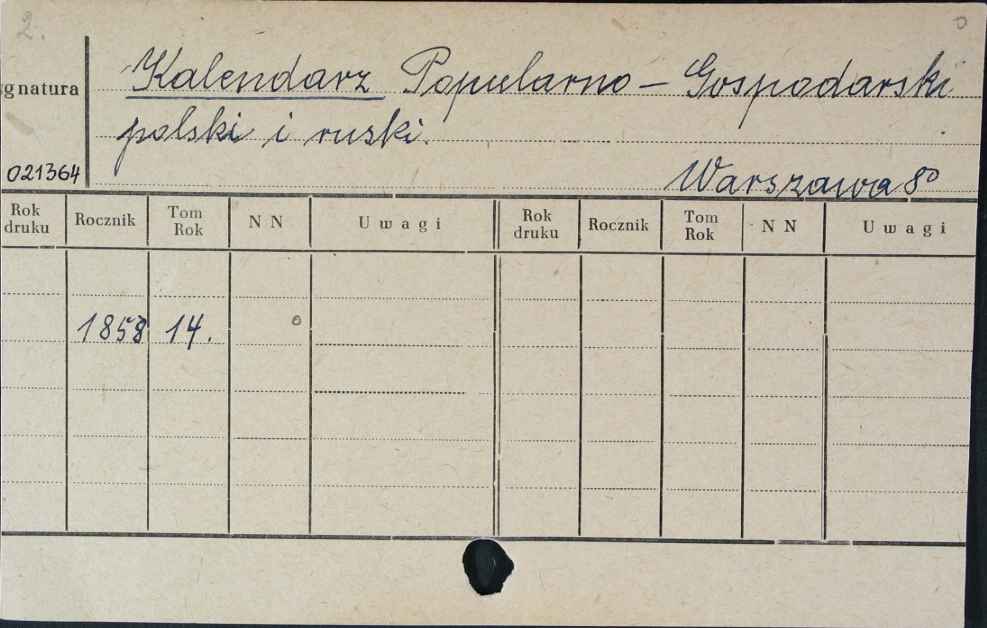 2.
gnatura
Kalendarz Popularno - Gospodarski
polski i ruski.
021364
Warszawa 8º
Rok druku Rocznik Tom Rok N N Uwagi Rok druku Rocznik Tom Rok N N Uwagi
1858 14.